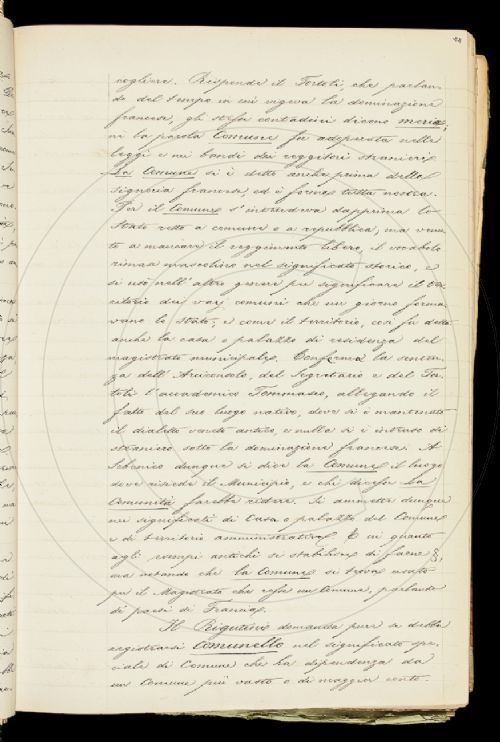 cogliere. Risponde il Tortoli, che parlan-
do del tempo in cui vigeva la dominazione
francese, gli stessi contadini dicono meria;
nè la parola Comune fu adoperata nelle
leggi e nei bandi dai reggitori stranieri.
La Comune si è detto anche prima della
signoria francese, ed è forma tutta nostra.
Per il Comune s'intendeva dapprima lo
Stato retto a comune o a repubblica, ma venu-
to a mancare il reggimento libero, il vocabolo
rimase mascolino nel significato storico, e
si usò nell'altro genere per significare il ter-
ritorio dei varj comuni che un giorno forma-
vano lo Stato; e come il territorio, così fu detta
anche la casa o palazzo di residenza del
magistrato municipale. Conforma la senten-
za dell'Arciconsolo, del Segretario e del Tor-
toli l'accademico Tommaseo, allegando il
fatto del suo luogo nativo, dove si è mantenuto
il dialetto veneto antico, e nulla si è intruso di
straniero sotto la dominazione francese. A
Sebenico dunque si dice la Comune il luogo
dove risiede il Municipio, e chi dicesse la
Comunità farebbe ridere. Si ammette dunque
nei significati di Casa o palazzo del Comune
e di territorio amministrativo. E in quanto
agli esempi antichi si stabilisce di farne §,
ma notando che la Comune si trova usato
per il Magistrato che regge un Comune, parlando
di paesi di Francia.
Il Rigutini domanda pure se debba
registrarsi Comunello nel significato spe-
ciale di Comune che ha dipendenza da
un Comune più vasto o di maggior conto.